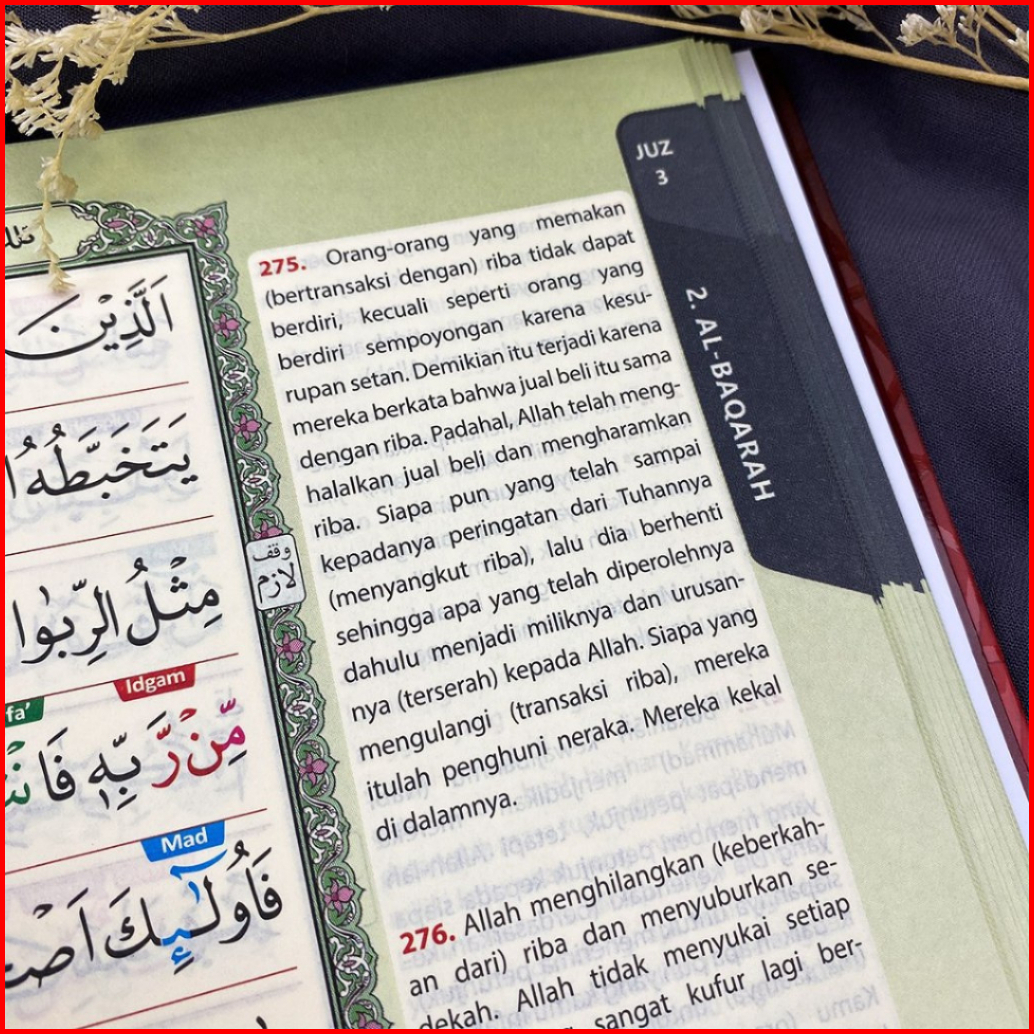 JUZ
3
2. AL-BAQARAH
275. Orang-orang yang memakan
(bertransaksi dengan) riba tidak dapat
berdiri, kecuali seperti orang yang
berdiri sempoyongan karena kesu-
rupan setan. Demikian itu terjadi karena
mereka berkata bahwa jual beli itu sama
dengan riba. Padahal, Allah telah meng-
halalkan jual beli dan mengharamkan
riba. Siapa pun yang telah sampai
kepadanya peringatan dari Tuhannya
(menyangkut riba), lalu dia berhenti
sehingga apa yang telah diperolehnya
dahulu menjadi miliknya dan urusan-
nya (terserah) kepada Allah. Siapa yang
mengulangi (transaksi riba), mereka
itulah penghuni neraka. Mereka kekal
di dalamnya.
276. Allah menghilangkan (keberkah-
an dari) riba dan menyuburkan se-
dekah. Allah tidak menyukai setiap
sangat kufur lagi ber-
اَلَّذِيْنَ
يَتَخَبَّطُهُ
وقف
لازم
مِثْلُ الرِّبٰوا
Idgam
مِّنْ رَّبِّهٖ
Mad
فَاُولٰۤىِٕكَ